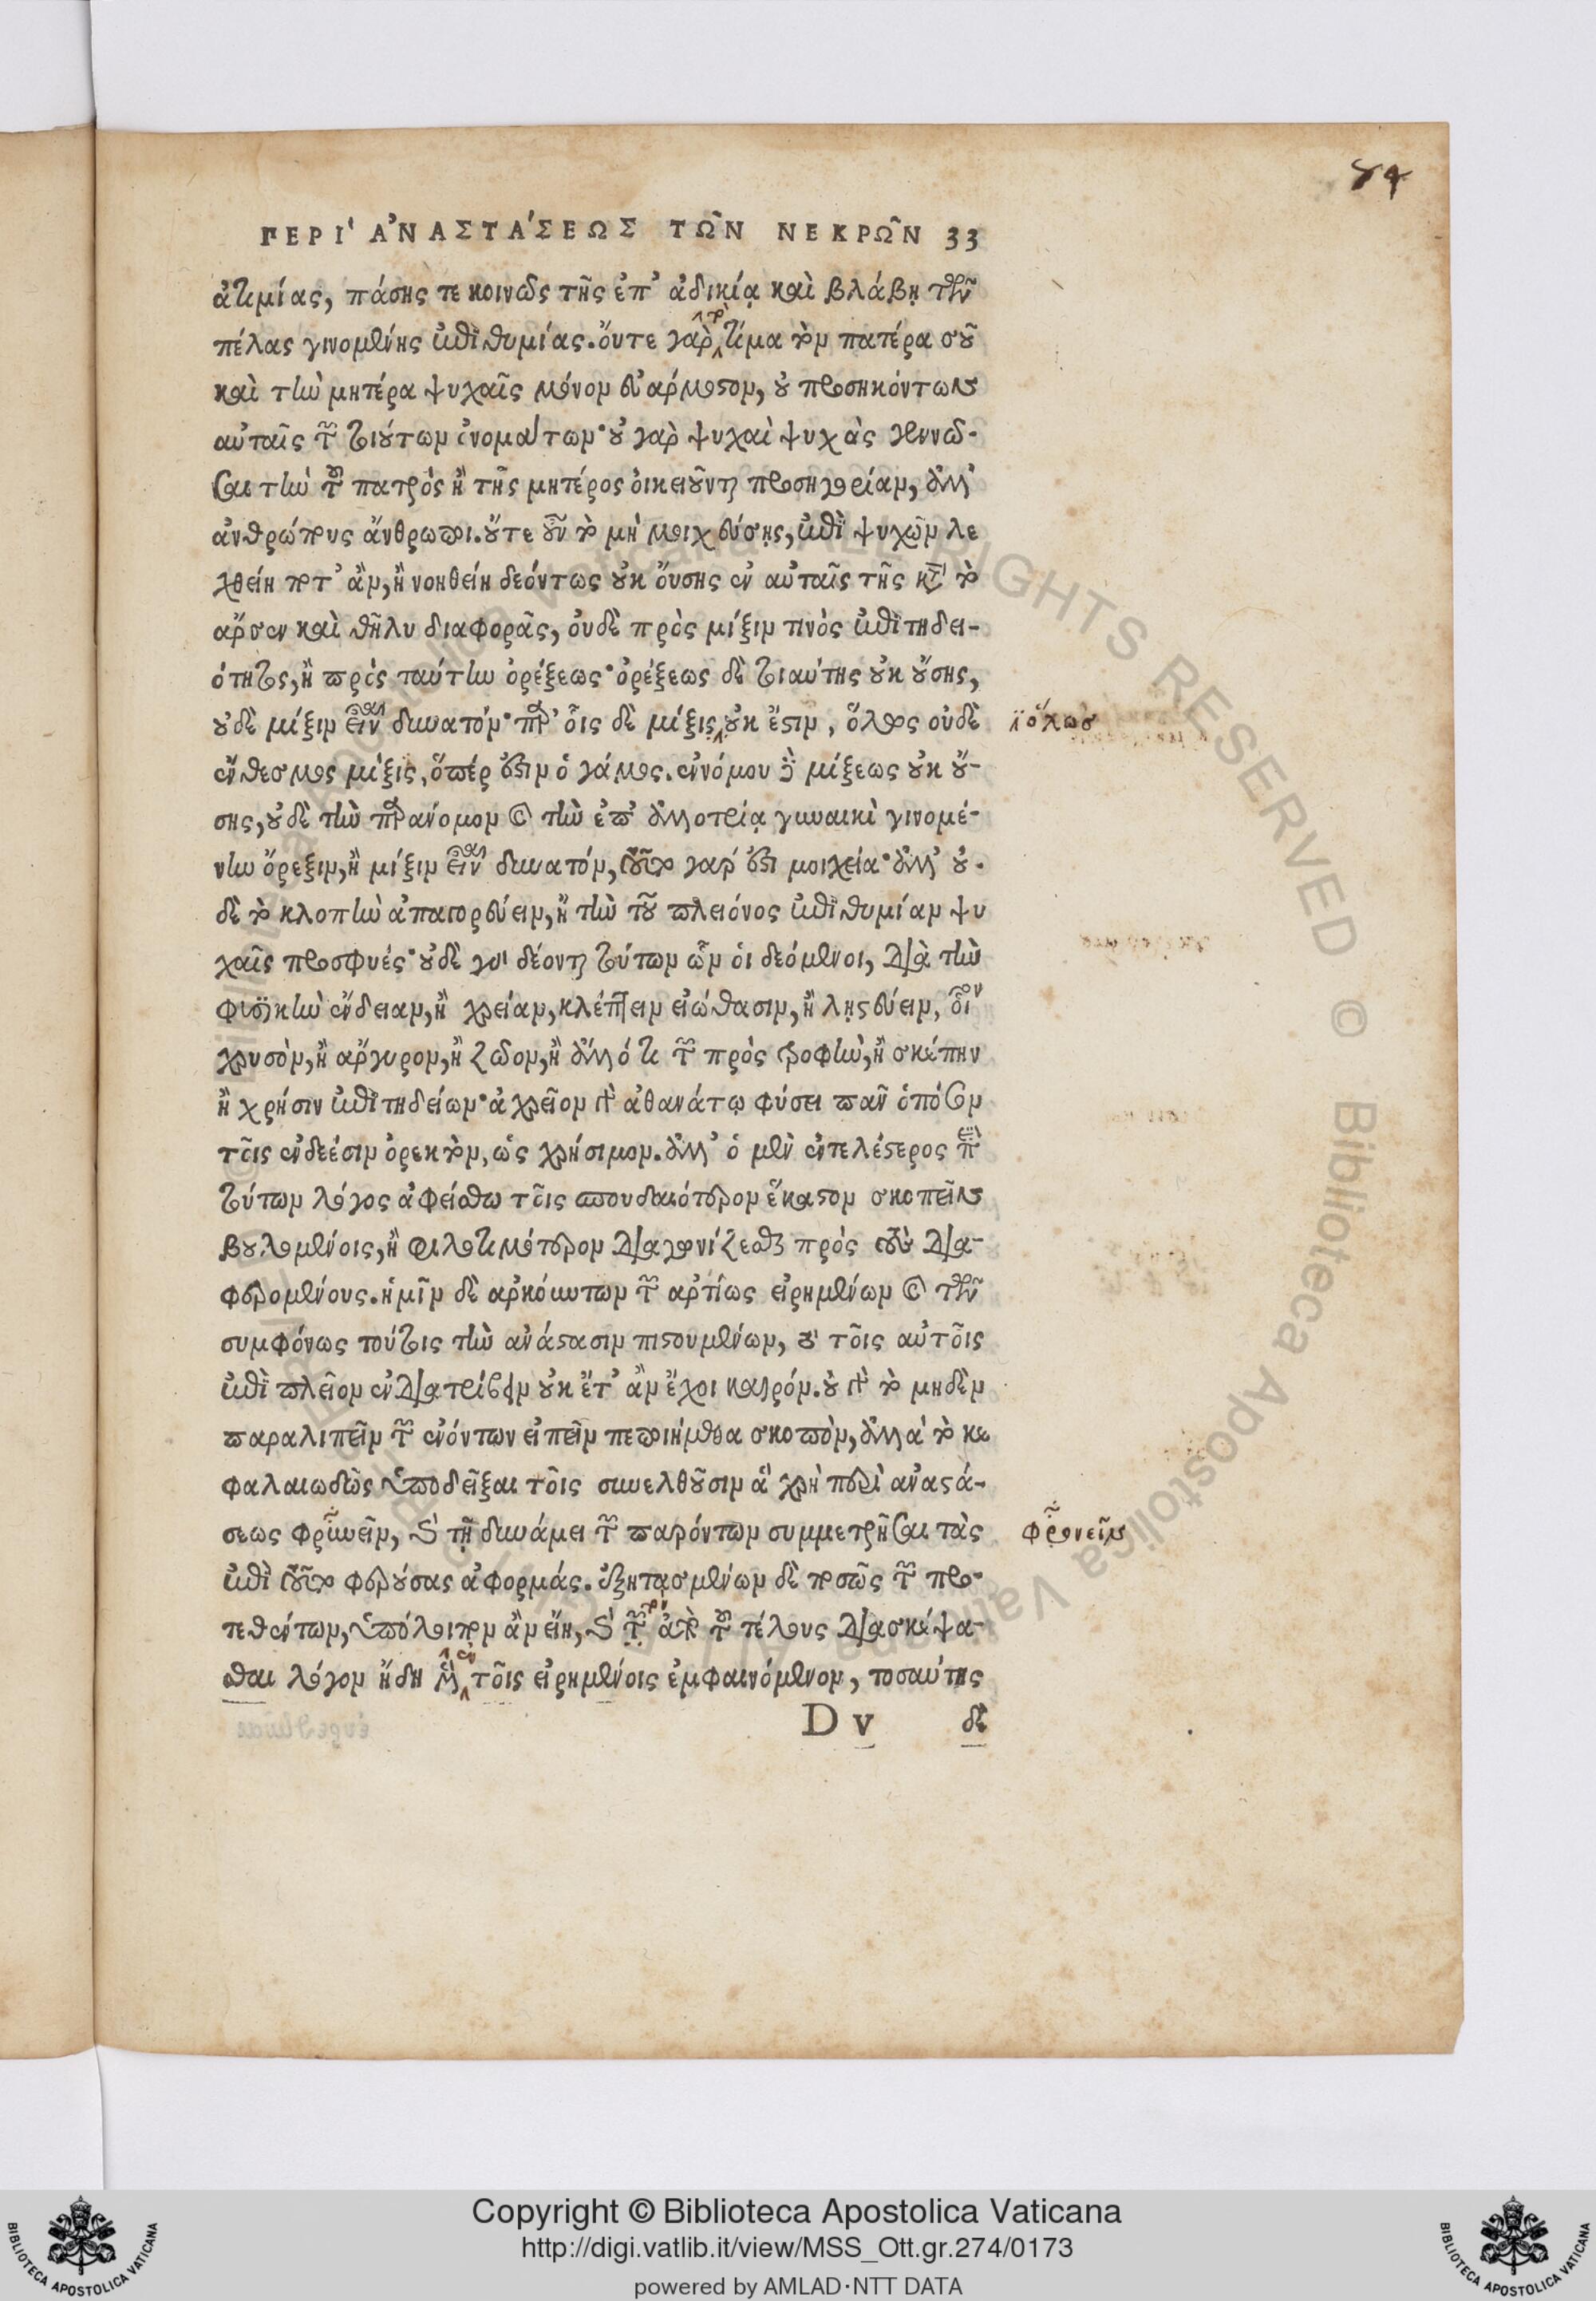 84
ΠΕΡΙ' ἈΝΑΣΤΑ'ΣΕΩΣ ΤΩ͂Ν ΝΕΚΡΩ͂Ν 33
ἀτιμίας, πάσης τε κοινῶς τῆς ἐπ' ἀδικίᾳ καὶ βλάβῃ τῶν
πέλας γινομένης ἐπιθυμίας. ὄυτε γὰρ τὸ τίμα τὸν πατέρα σοῦ
καὶ τὴν μητέρα ψυχαῖς μόνον εὐάρμοστον, οὐ προσηκόντων
αὐταῖς τῶν τοιούτων ὀνομάτων· οὐ γὰρ ψυχαὶ ψυχὰς γεννῶ-
σαι τὴν τοῦ πατρὸς ἢ τῆς μητέρος ὀικειοῦνται προσηγορίαν, ἀλλ'
ἀνθρώπους ἄνθρωποι. οὔτε οὖν τὸ μὴ μοιχεύσῃς, ἐπὶ ψυχῶν λε
χθείη ποτ' ἂν, ἢ νοηθείη δεόντως οὐκ ὄυσης ἐν αὐταῖς τῆς κατὰ τὸ
ἄρσεν καὶ θῆλυ διαφορᾶς, ὀυδὲ πρὸς μίξιν τινὸς ἐπιτηδει-
ότητος, ἢ πρὸς ταύτην ὀρέξεως· ὀρέξεως δὲ τοιαύτης οὐκ οὔσης,
οὐδὲ μίξιν εἶναι δυνατόν· παρ' οἷς δὲ μίξις οὐκ ἔστιν, ὅλος οὐδὲ
ἔνθεσμος μίξις, ὅπέρ ἐστιν ὁ γάμος. ἐννόμου δὲ μίξεως οὐκ οὔ-
σης, οὐδὲ τὴν παράνομον καὶ τὴν ἐπ' ἀλλοτρίᾳ γυναικὶ γινομέ-
νην ὄρεξιν, ἢ μίξιν εἶναι δυνατόν, τοῦτο γάρ ἐστι μοιχεία· ἀλλ' οὐ-
δὲ τὸ κλοπὴν ἀπαγορεύειν, ἢ τὴν τοῦ πλειόνος ἐπιθυμίαν ψυ
χαῖς προσφυές· οὐδὲ γοι δέονται τούτων ὧν ὁι δεόμενοι, διὰ τὴν
φυσικὴν ἔνδειαν, ἢ χρείαν, κλέπτειν εἰώθασιν, ἢ λῃστεύειν, οἷον
χρυσὸν, ἢ ἄργυρον, ἢ ζῶον, ἢ ἄλλό τι τῶν πρὸς τροφὴν, ἢ σκέπην
ἢ χρήσιν ἐπιτηδείων· ἀχρεῖον γὰρ ἀθανάτῳ φύσει πᾶν ὁπόσον
τοῖς ἐνδεέσιν ὀρεκτὸν, ὡς χρήσιμον. ἀλλ' ὁ μὲν ἐντελέστερος περὶ
τούτων λόγος ἀφείσθω τοῖς σπουδαιότερον ἕκαστον σκοπεῖν
βουλομένοις, ἢ φιλοτιμότερον διαγωνίζεσθαι πρὸς τοὺς δια-
φερομένους. ἡμῖν δὲ ἀρκόυντων τῶν ἀρτίως εἰρημένων καὶ τῶν
συμφόνως τούτοις τὴν ἀνάστασιν πιστουμένων, τὸ τοῖς αὐτοῖς
ἐπὶ πλεῖον ἐνδιατρίβειν οὐκ ἔτ' ἂν ἔχοι καιρόν. οὐ γὰρ τὸ μηδὲν
παραλιπεῖν τῶν ἐνόντων εἰπεῖν πεποιήμεθα σκοπὸν, ἀλλὰ τὸ κε
φαλαιωδῶς ὑποδεῖξαι τοῖς συνελθοῦσιν ἃ χρὴ περὶ ἀναστά-
σεως φρονεῖν, καὶ τῇ δυνάμει τῶν παρόντων συμμετρῆσαι τὰς
ἐπὶ τοῦτο φερούσας ἀφορμάς. ἐξητασμένων δὲ ποσῶς τῶν προ-
τεθέντων, ὑπόλοιπον ἂν εἴη, καὶ τὸν ἀπὸ τοῦ τέλους διασκέψα-
σθαι λόγον ἤδη μὲν ἐν τοῖς εἰρημένοις ἐμφαινόμενον, τοσαύτης
D v δὲ
ὅλως
φρονεῖν
Copyright © Biblioteca Apostolica Vaticana
http://digi.vatlib.it/view/MSS_Ott.gr.274/0173
powered by AMLAD·NTT DATA
BIBLIOTECA APOSTOLICA VATICANA
BIBLIOTECA APOSTOLICA VATICANA